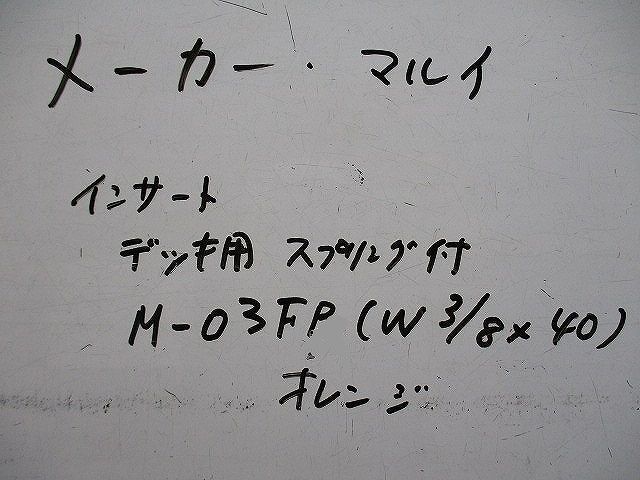 メーカー・マルイ
インサート
デッキ用 スプリング付
M-03FP(W3/8×40)
オレンジ